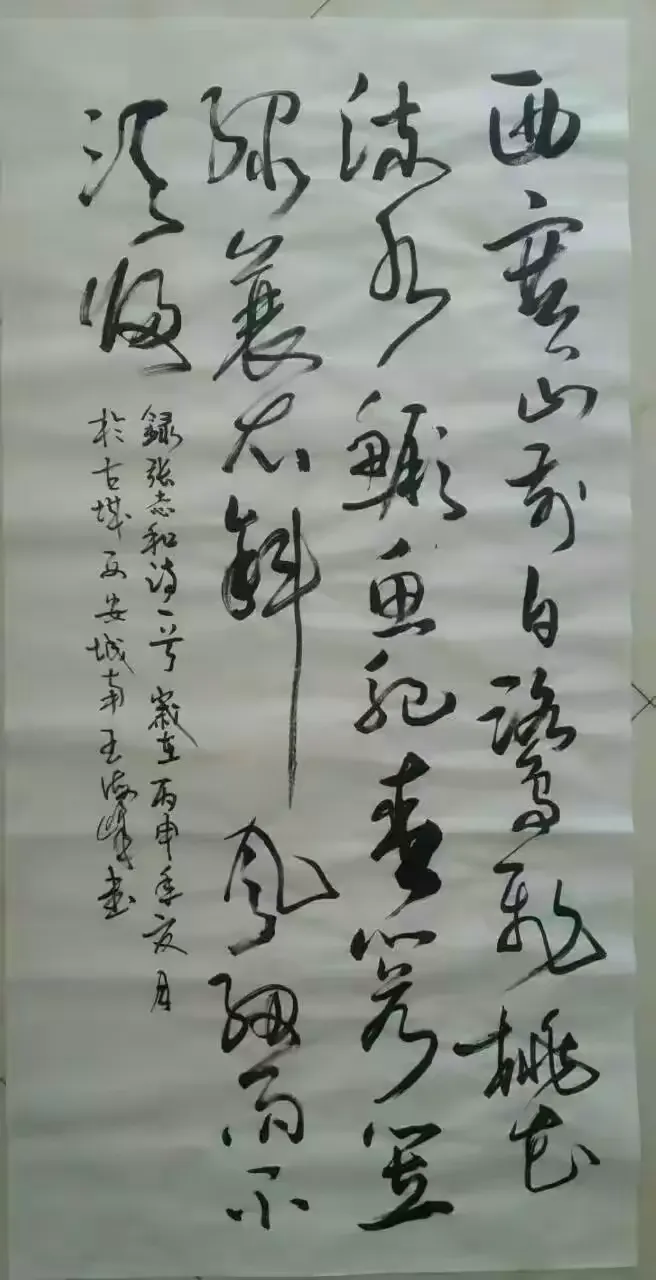 西塞山前白鹭飞桃花
流水鳜鱼肥青箬笠
绿蓑衣斜风细雨不
须归
録张志和诗一首歲在丙申年月
於古城西安城南王海峰书